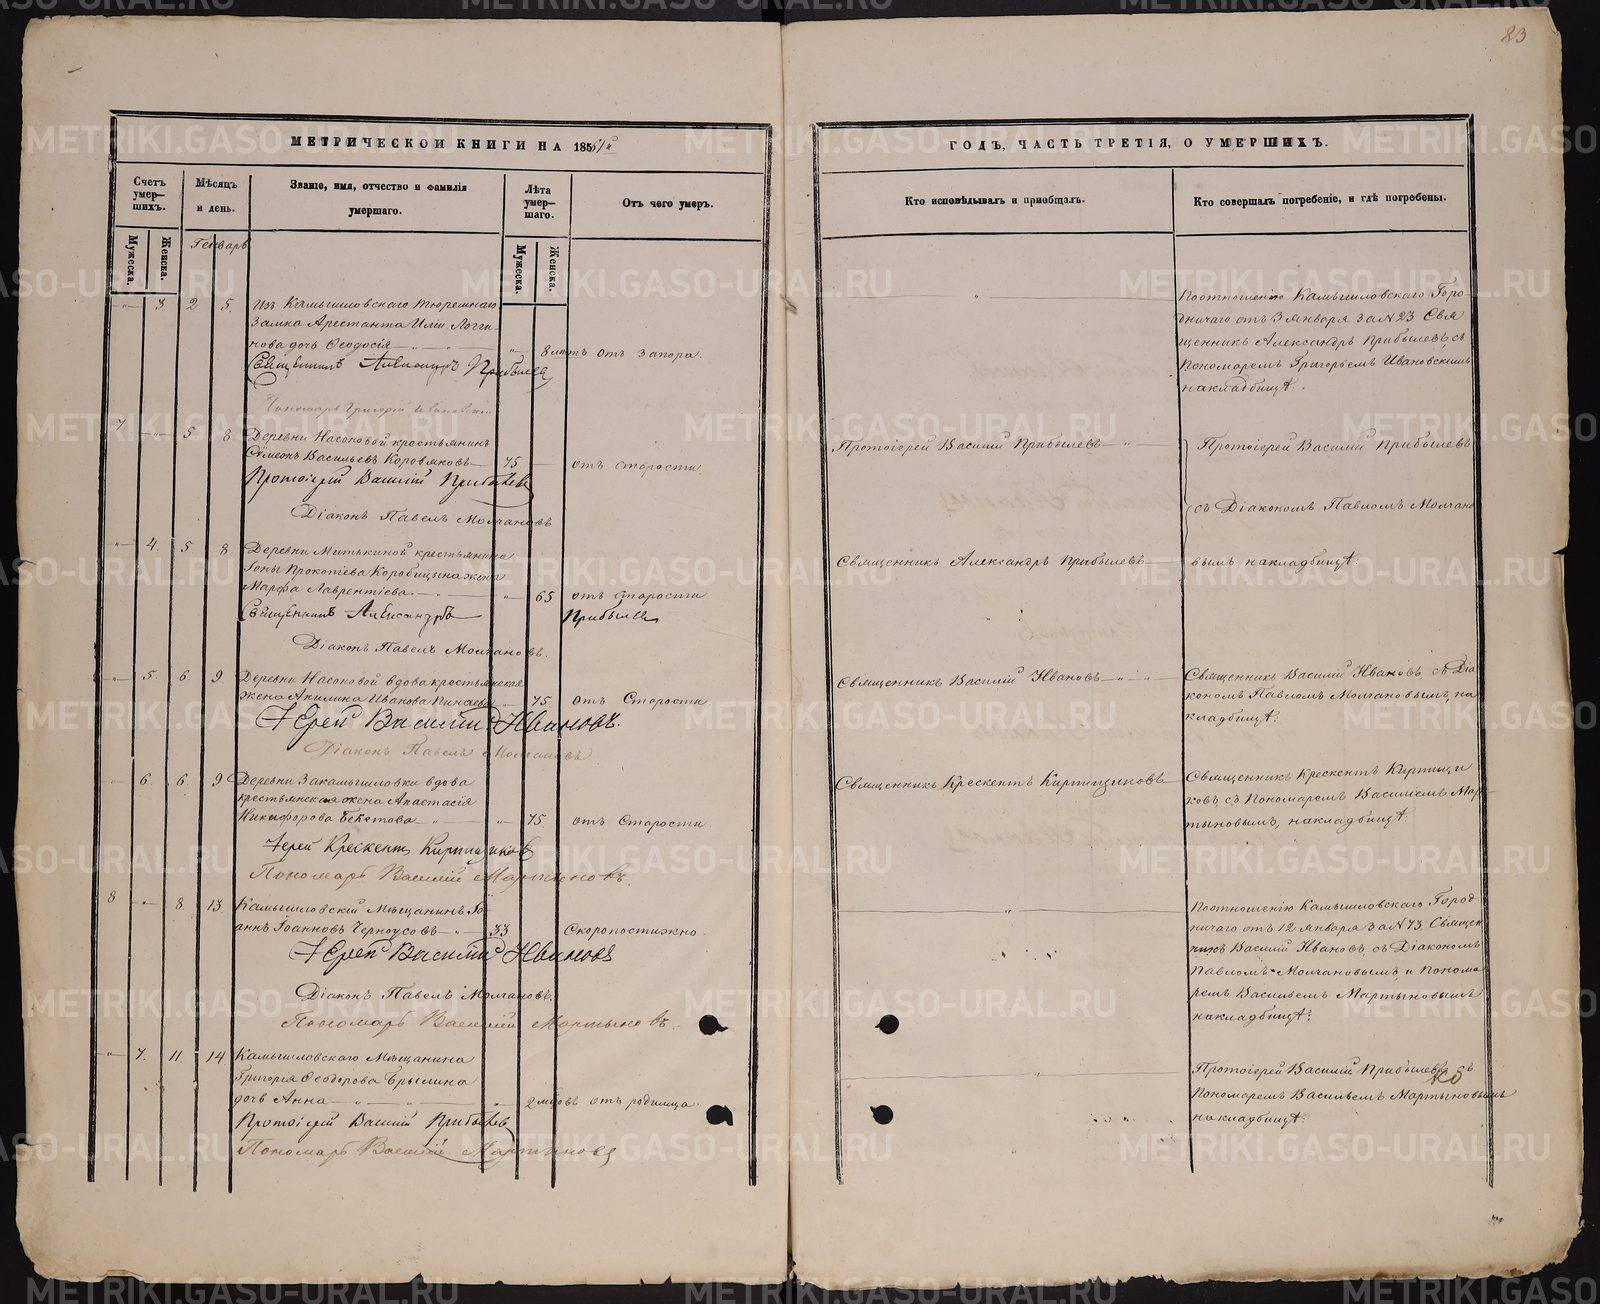 83
МЕТРИЧЕСКОЙ КНИГИ НА 185
ГОДЪ, ЧАСТЬ ТРЕТІЯ, О УМЕРШИХЪ.
Счетъ умер-шихъ.
Мѣсяцъ и день.
Званіе, имя, отчество и фамилія умершаго.
Лѣта умер-шаго.
Отъ чего умеръ.
Кто исповѣдывалъ и пріобщалъ.
Кто совершалъ погребеніе, и гдѣ погребены.
Мужеска.
Женска.
Генварь
Мужеска.
Женска.
3 2 5. Изъ Камышловскаго тюремнаго
замка Арестанта Иліи Логги-
нова дочь Ѳеодосія 8 лѣтъ отъ запора.
Священникъ Александръ Прибылевъ
Пономарь Григорій Ивановскій
Поотношенію Камышловскаго Горо-
дничаго отъ 3 января за N 23 Свя
щенникъ Александръ Прибылевъ, съ
Пономаремъ Григорьемъ Ивановскимъ
накладбищѣ.
7 5 8 Деревни Насоновой крестьянинъ
Сѵмеонъ Васильевъ Коровяковъ 75 отъ старости
Протоіерей Василій Прибылевъ
Діаконъ Павелъ Молчановъ
Протоіерей Василій Прибылевъ
Протоіерей Василій Прибылевъ
съ Діакономъ Павломъ Молчано
вымъ накладбищѣ.
4. 5 8 Деревни Митькиной крестьянина
Іоны Прокопіева Коробицына жена
Марфа Лаврентіева. 65 отъ старости
Священникъ Александръ Прибылевъ
Діаконъ Павелъ Молчановъ.
Священникъ Александръ Прибылевъ
5. 6 9 Деревни Насоновой вдова крестьянская
жена Акилина Иванова 75 отъ Старости
Іерей Василій Ивановъ.
Діаконъ Павелъ Молчановъ
Священникъ Василій Ивановъ
Священникъ Василій Ивановъ, съ Діа
кономъ Павломъ Молчановымъ, на
кладбищѣ.
6 6 9 Деревни Закамышловки вдова
крестьянская жена Анастасія
Никифорова Бекетова 75 отъ Старости.
Іерей Крескентъ Кирпищиковъ
Пономарь Василій Мартыновъ.
Священникъ Крескентъ Кирпищиковъ
Священникъ Крескентъ Кирпищи
ковъ съ Пономаремъ Василіемъ Мар
тыновымъ, накладбищѣ.
8 8. 13 Камышловскій Мѣщанинъ Іо
аннъ Іоанновъ Черноусовъ 33 Скоропостижно.
Іерей Василій Ивановъ
Діаконъ Павелъ Молчановъ.
Пономарь Василій Мартыновъ.
Поотношенію Камышловскаго Город
ничаго отъ 12 января за N 73. Священ
никъ Василій Ивановъ, съ Діакономъ
Павломъ Молчановымъ и Понома
ремъ Васильемъ Мартыновымъ
накладбищѣ.
7. 11. 14 Камышловскаго Мѣщанина
Григорія Ѳеодорова Брылина
дочь Анна 2 мѣсяцовъ отъ родимца.
Протоіерей Василій Прибылевъ
Пономарь Василій Мартыновъ
Протоіерей Василій Прибылевъ съ
Пономаремъ Васильемъ Мартыновымъ
накладбищѣ.
METRIKI.GASO-URAL.RU